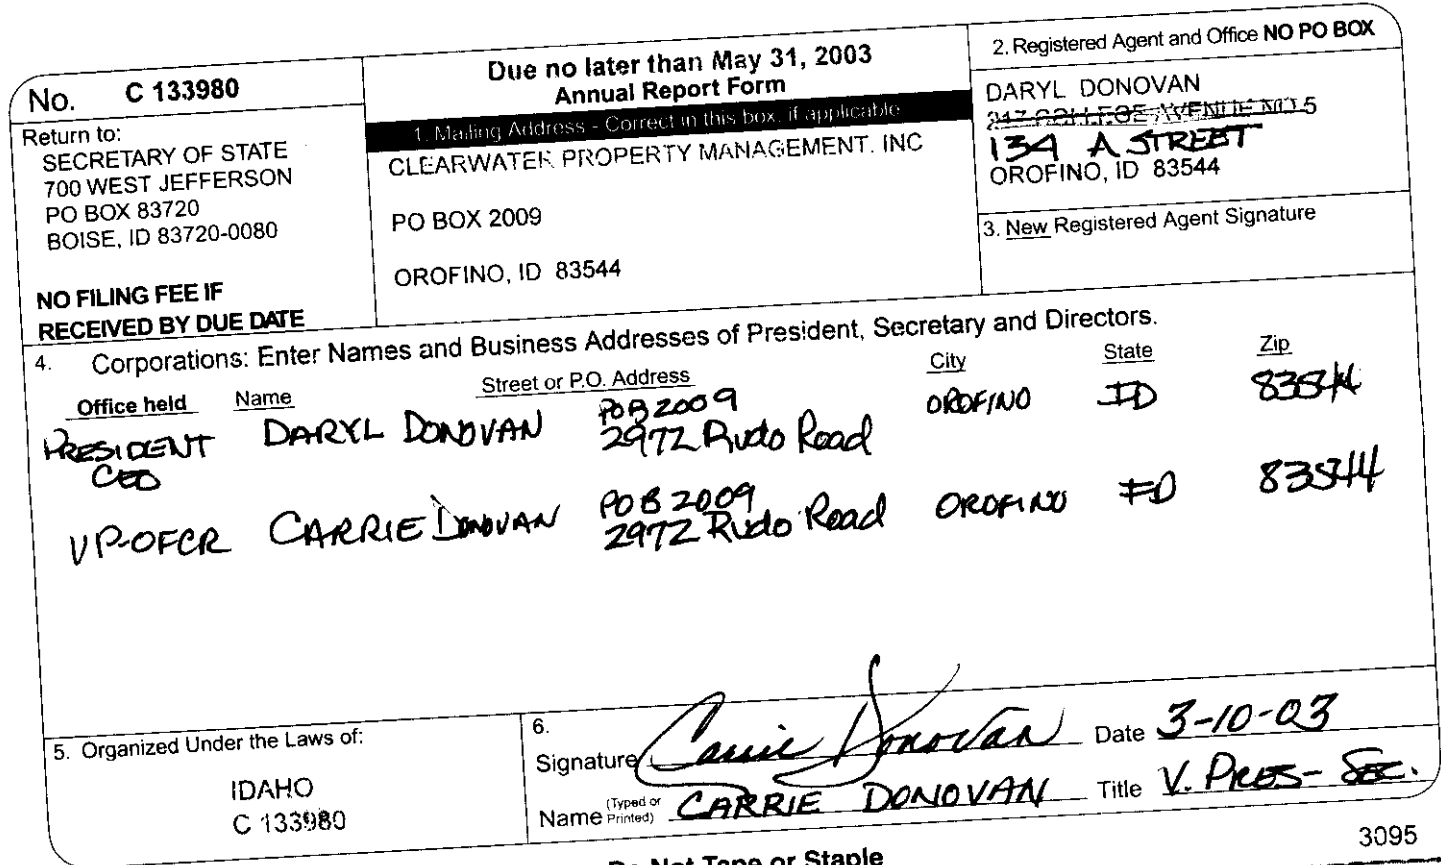 No. C 133980
Return to:
SECRETARY OF STATE
700 WEST JEFFERSON
PO BOX 83720
BOISE, ID 83720-0080
NO FILING FEE IF
RECEIVED BY DUE DATE
Due no later than May 31, 2003
Annual Report Form
1. Mailing Address - Correct in this box, if applicable
CLEARWATER PROPERTY MANAGEMENT, INC
PO BOX 2009
OROFINO, ID 83544
2. Registered Agent and Office NO PO BOX
DARYL DONOVAN
217 COLLEGE AVENUE NO 5
134 A STREET
OROFINO, ID 83544
3. New Registered Agent Signature
4. Corporations: Enter Names and Business Addresses of President, Secretary and Directors.
Office held Name Street or P.O. Address City State Zip
PRESIDENT DARYL DONOVAN POB 2009 OROFINO ID 83544
CEO 2972 Rudo Road
VP-OFCR CARRIE DONOVAN POB 2009 OROFINO ID 83544
2972 Rudo Road
5. Organized Under the Laws of:
IDAHO
C 133980
6.
Signature Carrie Donovan Date 3-10-03
Name (Typed or Printed) CARRIE DONOVAN Title V. PRES- SEC.
3095
Do Not Tape or Staple